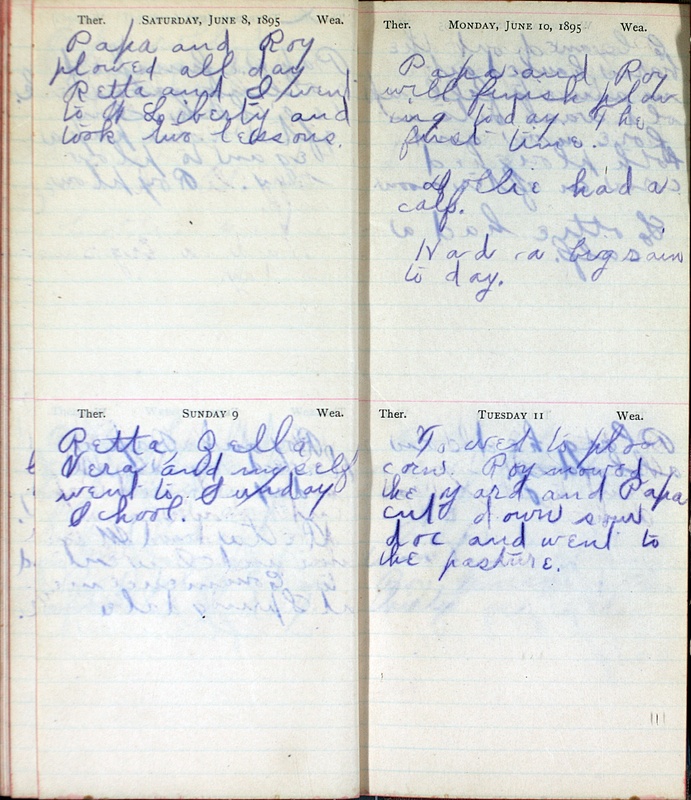 Ther. SATURDAY, JUNE 8, 1895 Wea.
Papa and Roy
plowed all day
Retta and I went
to W Liberty and
took two lessons.
Ther. SUNDAY 9 Wea.
Retta Della
Vera and myself
went to Sunday
School.
Ther. MONDAY, JUNE 10, 1895 Wea.
Papa and Roy
will finish plow
ing today. The
first time.
Lollie had a
calf.
Had a big rain
to day.
Ther. TUESDAY 11 Wea.
To wet to plow
corn. Roy mowed
the yard and Papa
cut down sour
doc and went to
the pasture.